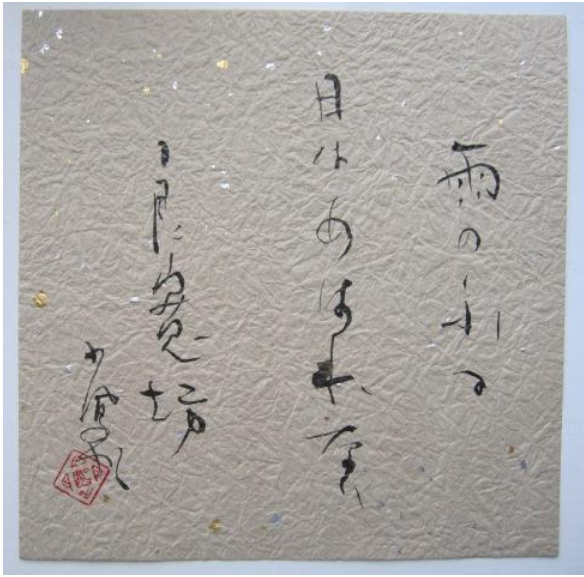 雨のふる
日はあはれなり
良寛坊